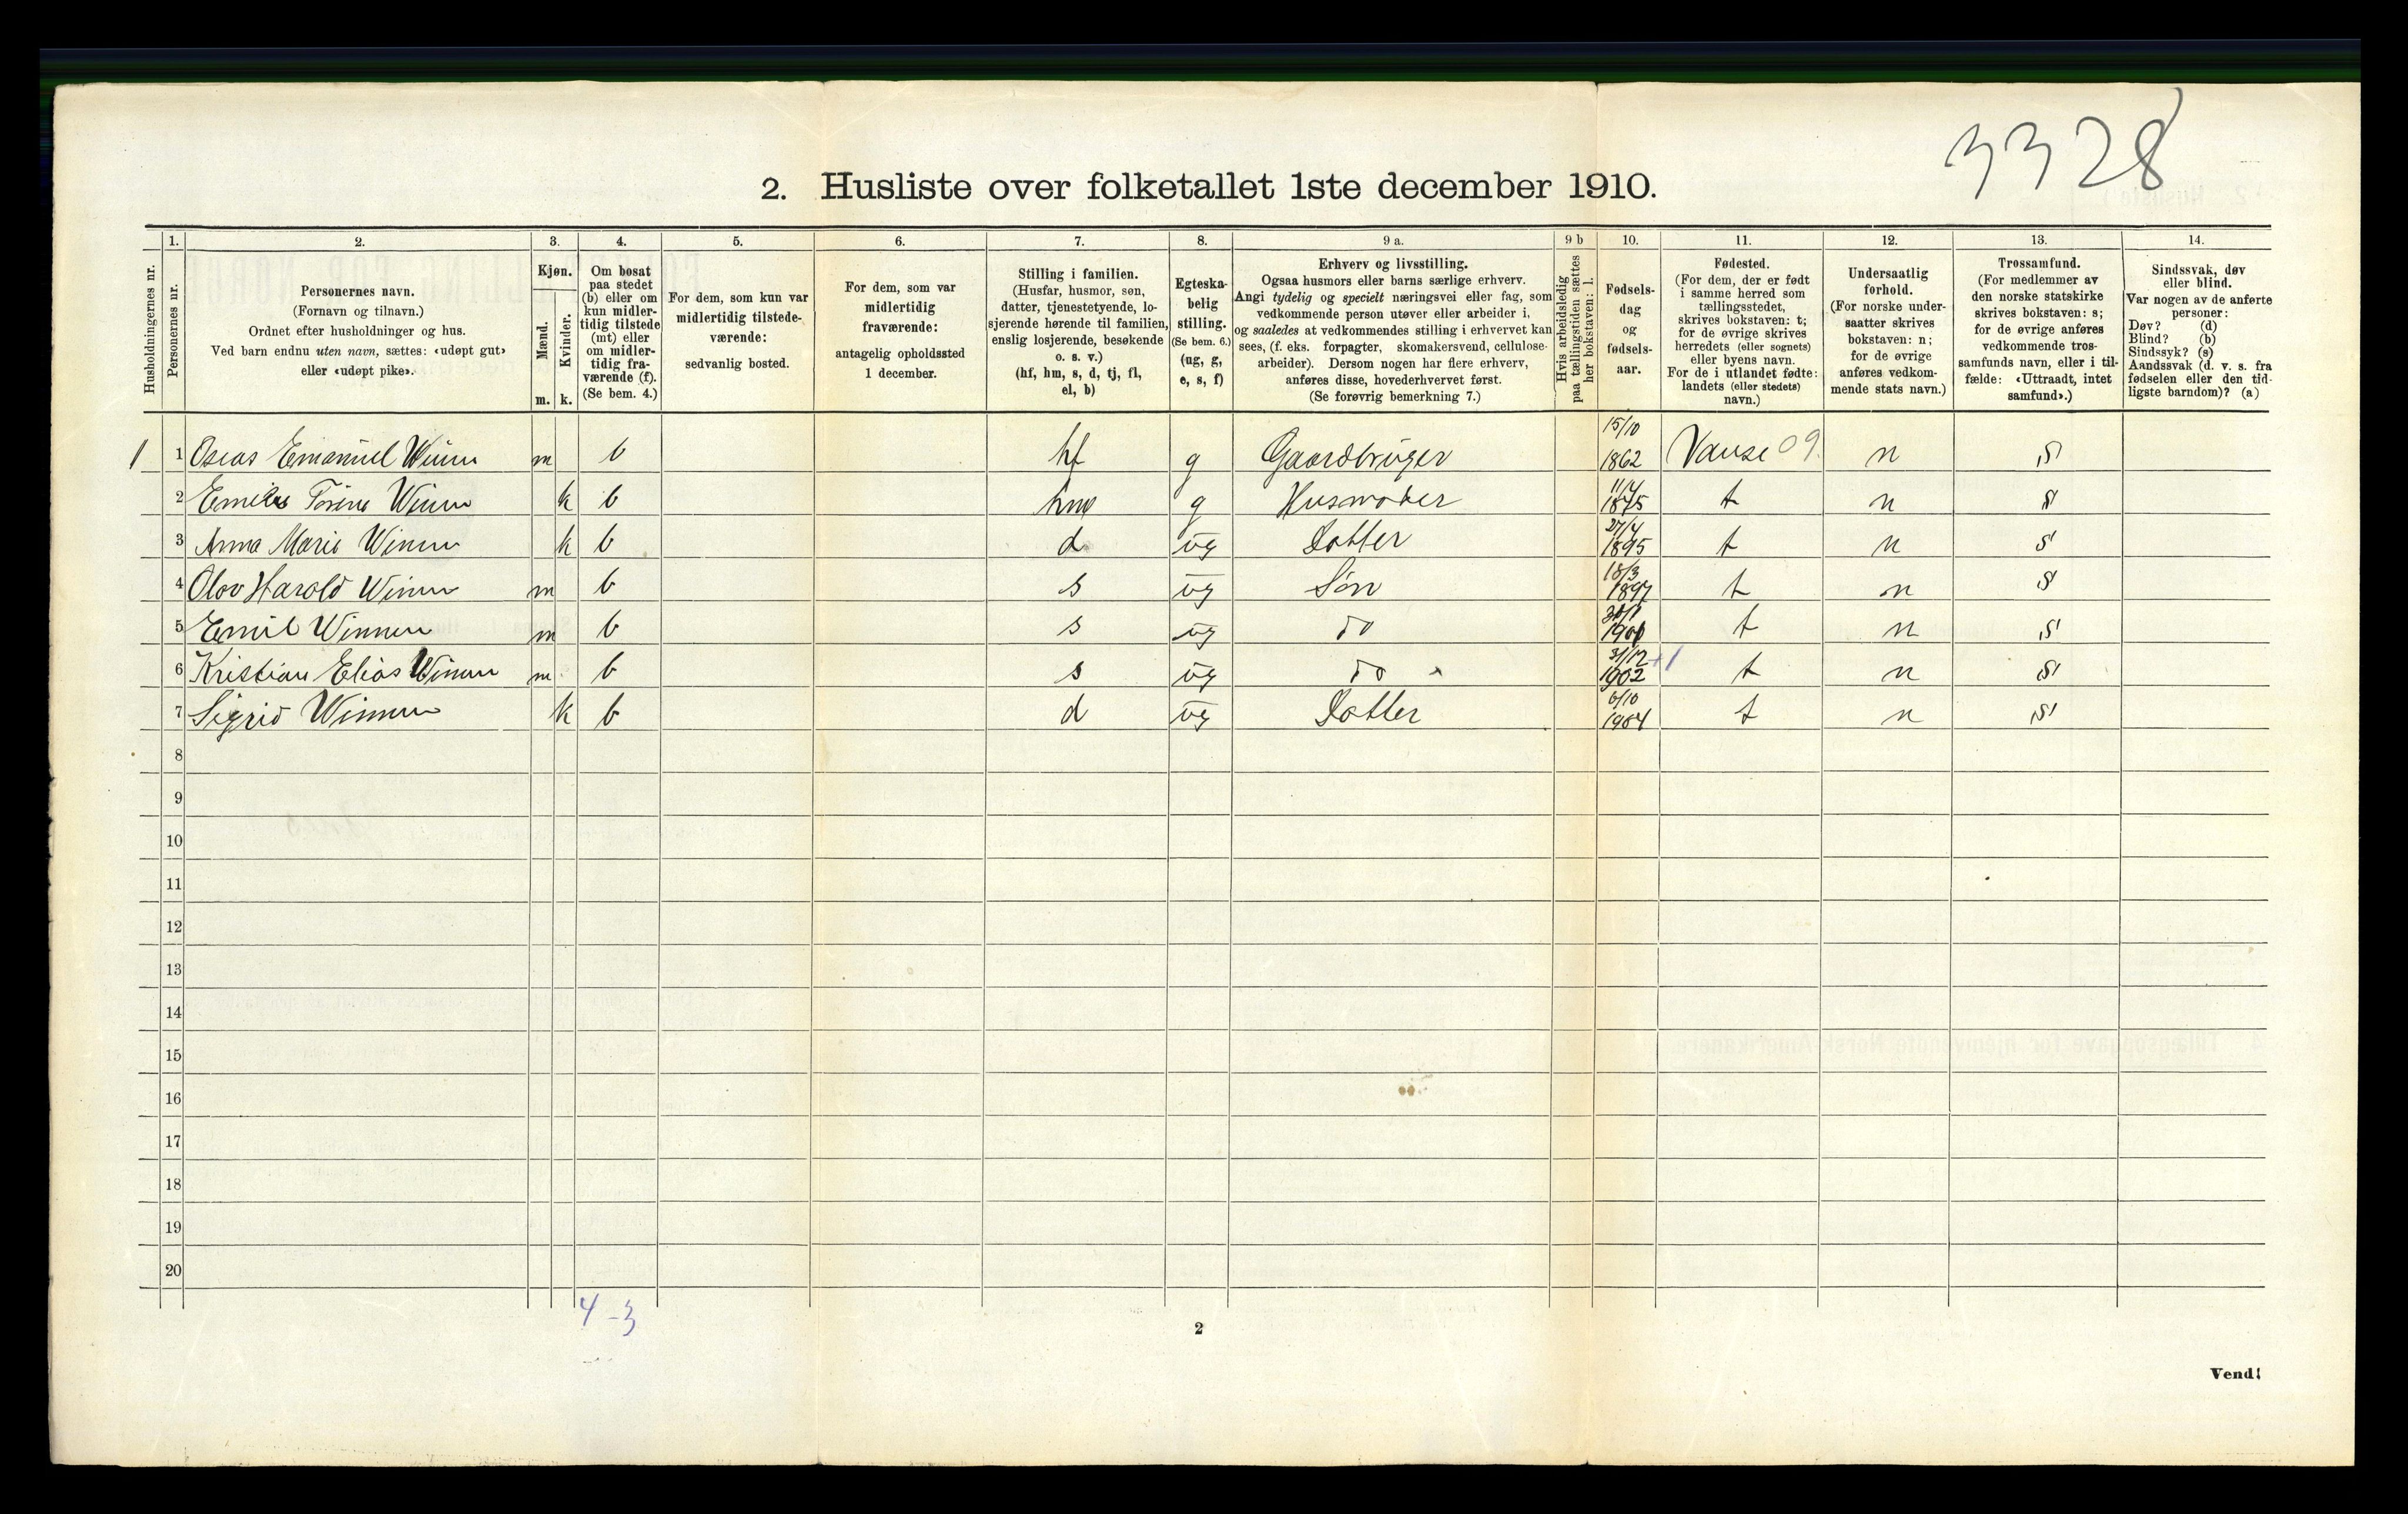 3328
2. Husliste over folketallet 1ste december 1910.
Husholdningernes nr.
1. Personernes nr.
2. Personernes navn.
(Fornavn og tilnavn.)
Ordnet efter husholdninger og hus.
Ved barn endnu uten navn, sættes: «udøpt gut»
eller «udøpt pike».
3. Kjøn.
Mænd. m.
Kvinder. k.
4. Om bosat
paa stedet
(b) eller om
kun midler-
tidig tilstede
(mt) eller
om midler-
tidig fra-
værende (f).
(Se bem. 4.)
5. For dem, som kun var
midlertidig tilstede-
værende:
sedvanlig bosted.
6. For dem, som var
midlertidig
fraværende:
antagelig opholdssted
1 december.
7. Stilling i familien.
(Husfar, husmor, søn,
datter, tjenestetyende, lo-
sjerende hørende til familien,
enslig losjerende, besøkende
o. s. v.)
(hf, hm, s, d, tj, fl,
el, b)
8. Egteska-
belig
stilling.
(Se bem. 6.)
(ug, g,
e, s, f)
9 a. Erhverv og livsstilling.
Ogsaa husmors eller barns særlige erhverv.
Angi tydelig og specielt næringsvei eller fag, som
vedkommende person utøver eller arbeider i,
og saaledes at vedkommendes stilling i erhvervet kan
sees, (f. eks. forpagter, skomakersvend, cellulose-
arbeider). Dersom nogen har flere erhverv,
anføres disse, hovederhvervet først.
(Se forøvrig bemerkning 7.)
9 b Hvis arbeidsledig
paa tællingstiden sættes
her bokstaven: l.
10. Fødsels-
dag
og
fødsels-
aar.
11. Fødested.
(For dem, der er født
i samme herred som
tællingsstedet,
skrives bokstaven: t;
for de øvrige skrives
herredets (eller sognets)
eller byens navn.
For de i utlandet fødte:
landets (eller stedets)
navn.)
12. Undersaatlig
forhold.
(For norske under-
saatter skrives
bokstaven: n;
for de øvrige
anføres vedkom-
mende stats navn.)
13. Trossamfund.
(For medlemmer av
den norske statskirke
skrives bokstaven: s;
for de øvrige anføres
vedkommende tros-
samfunds navn, eller i til-
fælde: «Uttraadt, intet
samfund».)
14. Sindssvak, døv
eller blind.
Var nogen av de anførte
personer:
Døv? (d)
Blind? (b)
Sindssyk? (s)
Aandssvak (d. v. s. fra
fødselen eller den tid-
ligste barndom)? (a)
1 1 Oseas Emanuel m b hf g Gaardbruger 15/10 1862 Vanse 09. n S
2 k b hm g Husmoder 11/4 1875 t n S
3 Anna Marie k b d ug Datter 27/4 1895 t n S
4 Olov Harold m b s ug Søn 18/3 1897 t n S
5 Emil m b s ug do t n S
6 Kristian Elias m b s ug do 31/12 1902 +1 t n S
7 Sigrid k b d ug Datter 6/10 1904 t n S
8
9
10
11
12
13
14
15
16
17
18
19
20
4-3
2
Vend!